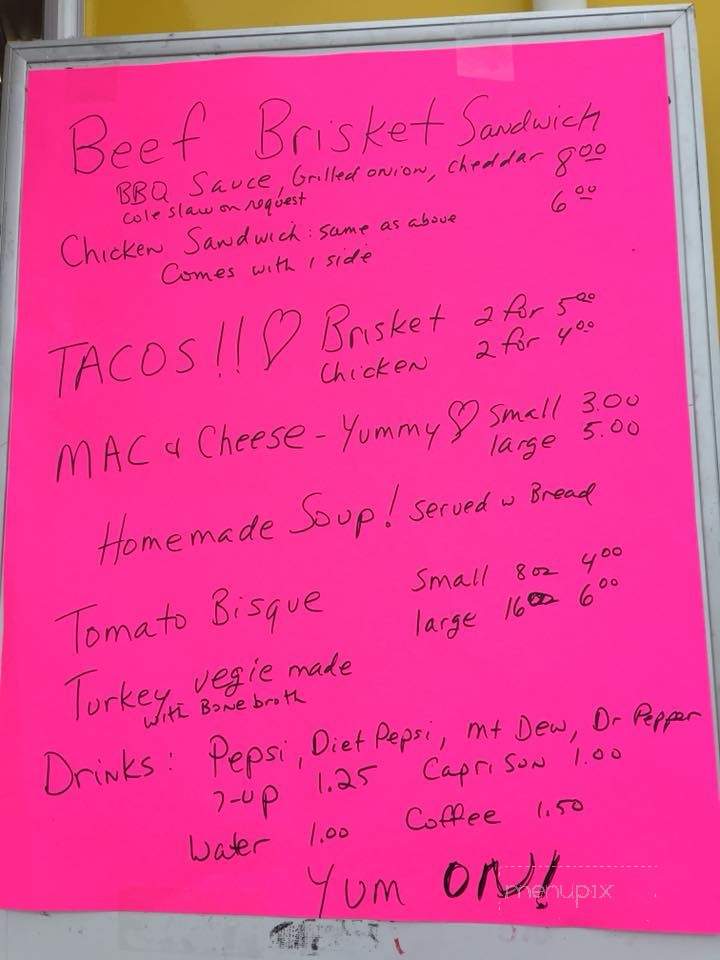 Beef Brisket Sandwich
BBQ Sauce, Grilled onion, cheddar 8.00
cole slaw on request
Chicken Sandwich: same as above 6.00
Comes with 1 side
TACOS!!♡ Brisket 2 for 5.00
Chicken 2 for 4.00
MAC & Cheese - Yummy♡ small 3.00
large 5.00
Homemade Soup! Served w Bread
Tomato Bisque Small 8oz 4.00
large 16oz 6.00
Turkey vegie made
with Bone broth
Drinks: Pepsi, Diet Pepsi, mt Dew, Dr Pepper
7-up 1.25 Capri Son 1.00
Water 1.00 Coffee 1.50
Yum ON!
menupix